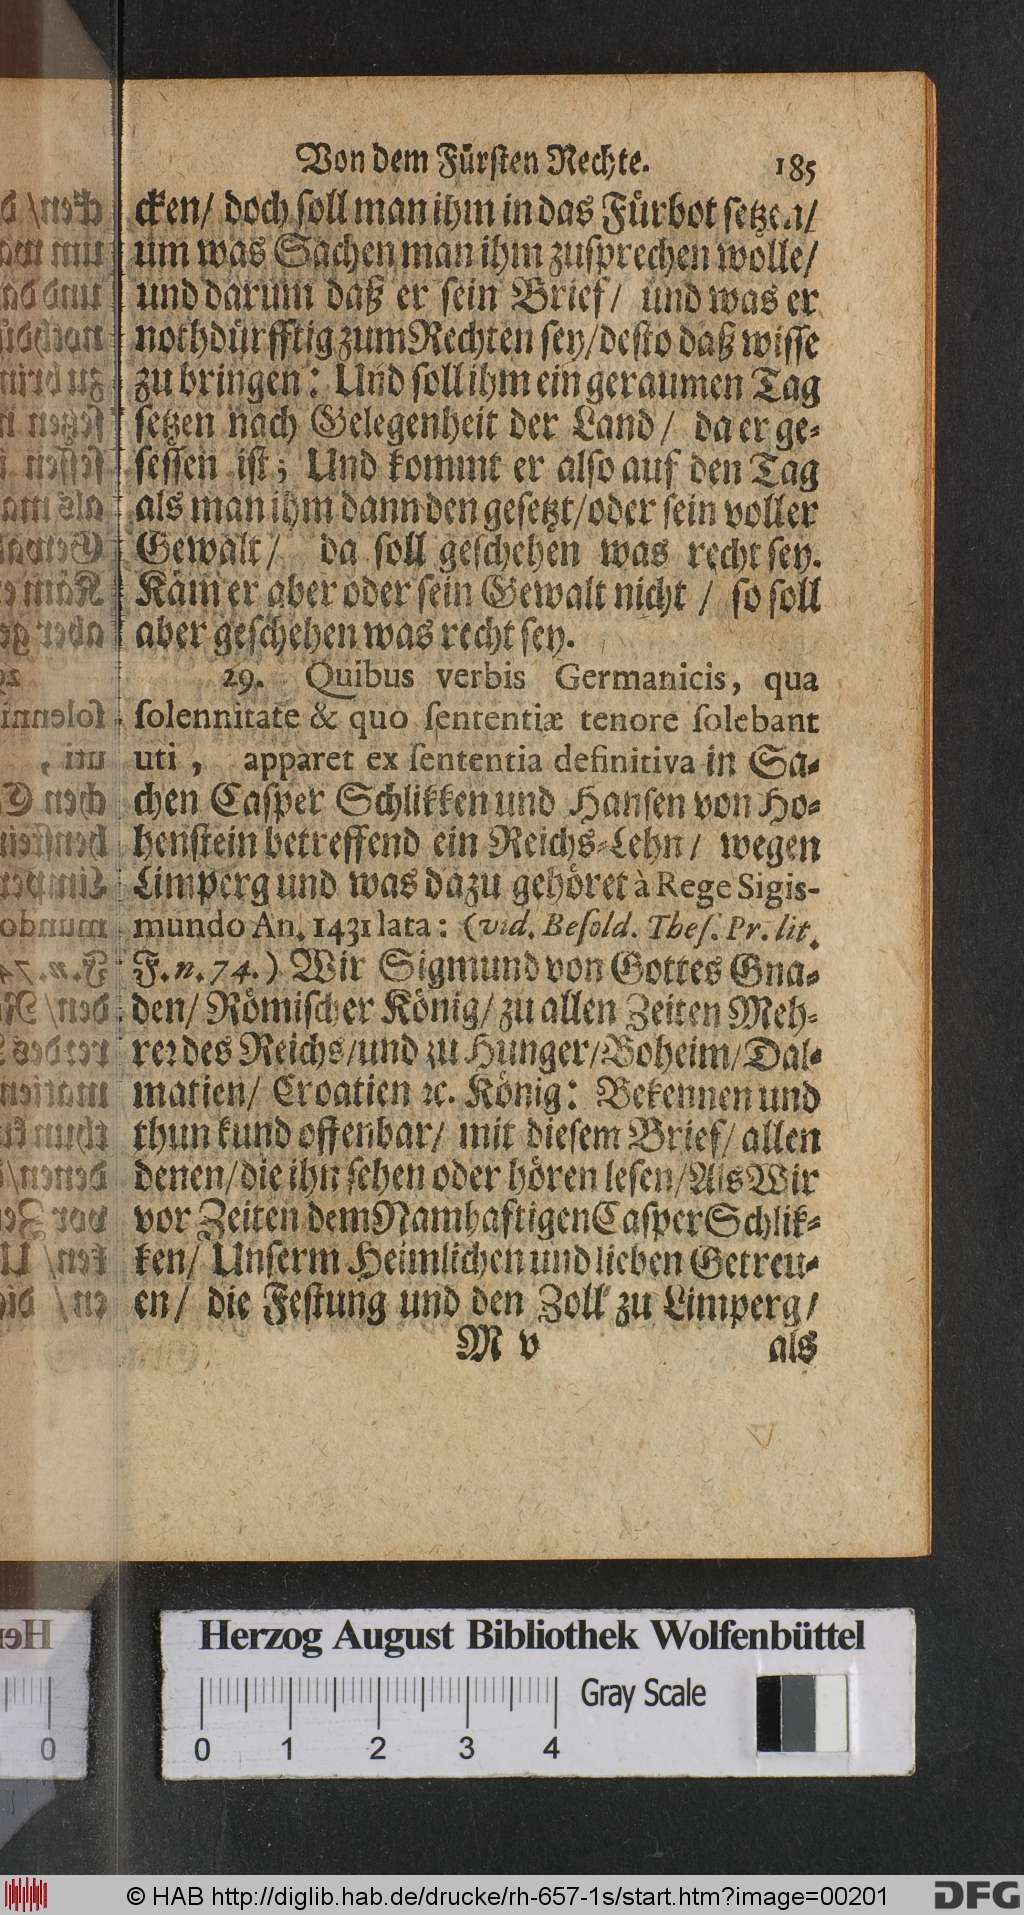 Von dem Fürsten Rechte. 185
cken/ doch soll man ihm in das Fürbot setzen/
um was Sachen man ihm zusprechen wolle/
und darum daß er sein Brief/ und was er
nothdürfftig zum Rechten sey/ desto daß wisse
zu bringen: Und soll ihm ein geraumen Tag
setzen nach Gelegenheit der Land/ da er ge-
sessen ist; Und kommt er also auf den Tag
als man ihm dann den gesetzt/ oder sein voller
Gewalt/ da soll geschehen was recht sey.
Käm er aber oder sein Gewalt nicht / so soll
aber geschehen was recht sey.
29. Quibus verbis Germanicis, qua
solennitate & quo sententiæ tenore solebant
uti, apparet ex sententia definitiva in Sa-
chen Casper Schlikken und Hansen von Ho-
henstein betreffend ein Reichs-Lehn/ wegen
Limperg und was dazu gehöret à Rege Sigis-
mundo An. 1431 lata: (vid. Besold. Thes. Pr. lit.
F. n. 74.) Wir Sigmund von Gottes Gna-
den/ Römischer König/ zu allen Zeiten Meh-
rer des Reichs/ und zu Hunger/ Boheim/ Dal-
matien/ Croatien ꝛc. König: Bekennen und
thun kund offenbar/ mit diesem Brief/ allen
denen/ die ihn sehen oder hören lesen/ Als Wir
vor Zeiten dem Namhaftigen Casper Schlik-
ken/ Unserm Heimlichen und lieben Getreu-
en/ die Festung und den Zoll zu Limperg/
M v als
Herzog August Bibliothek Wolfenbüttel
Gray Scale
0 1 2 3 4
© HAB http://diglib.hab.de/drucke/rh-657-1s/start.htm?image=00201
DFG